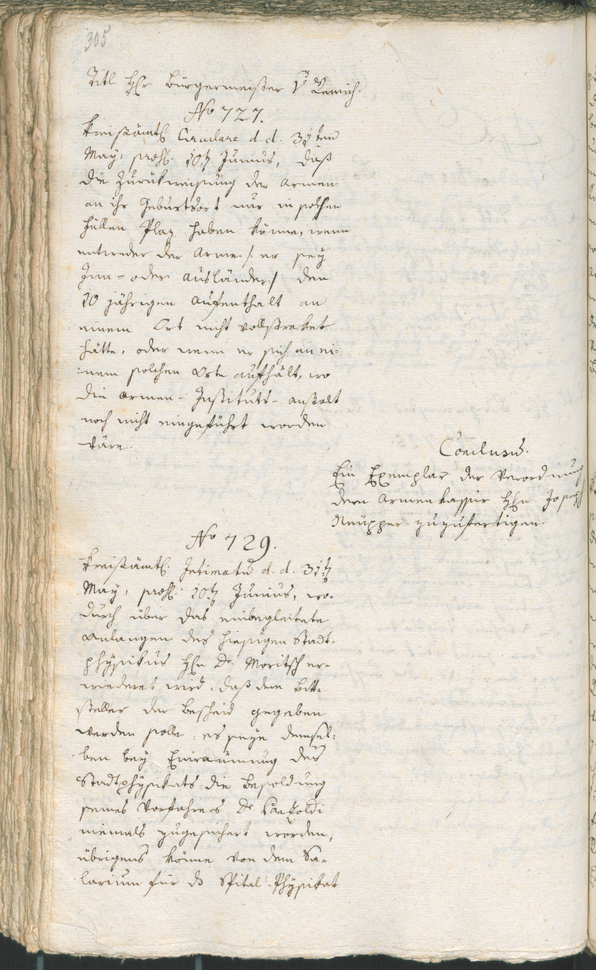 305
Titl Hr Bürgermeister
No 727.
Kreisämtl. Circulare d. d. 31ten
May, praes. 10ten Junius, daß
die Zurükweisung der Armen
an ihr Geburtsort nur in solchen
Fällen Plaz haben könne, wenn
entweder der Arme / er sey
Inn- oder Ausländer / den
10 jährigen Aufenthalt an
einem Ort nicht vollstreket
hätte, oder wenn er sich an ei-
nem solchen Orte aufhält, wo
die Armen-Instituts-Anstalt
noch nicht eingeführt worden
wäre.
Conclusum.
Ein Exemplar der Verordnung
dem Armenkassier Hrn. Joseph
Neupper zuzufertigen.
No 729.
Kreisämtl. Intimatum d. d. 31ten
May, praes. 10ten Junius, wo-
durch über das einbegleitete
Anlangen des hiesigen Stadt-
physikus Hrn Dr. Moritsch er-
wiederet wird, daß dem Bitt-
steller der Bescheid gegeben
werden solle, es seye demsel-
ben bey Einräumung des
Stadtphysikats die Besoldung
seines Vorfahrers Dr
niemals zugesichert worden,
übrigens könne von dem Sa-
larium für das Spital-Physikat